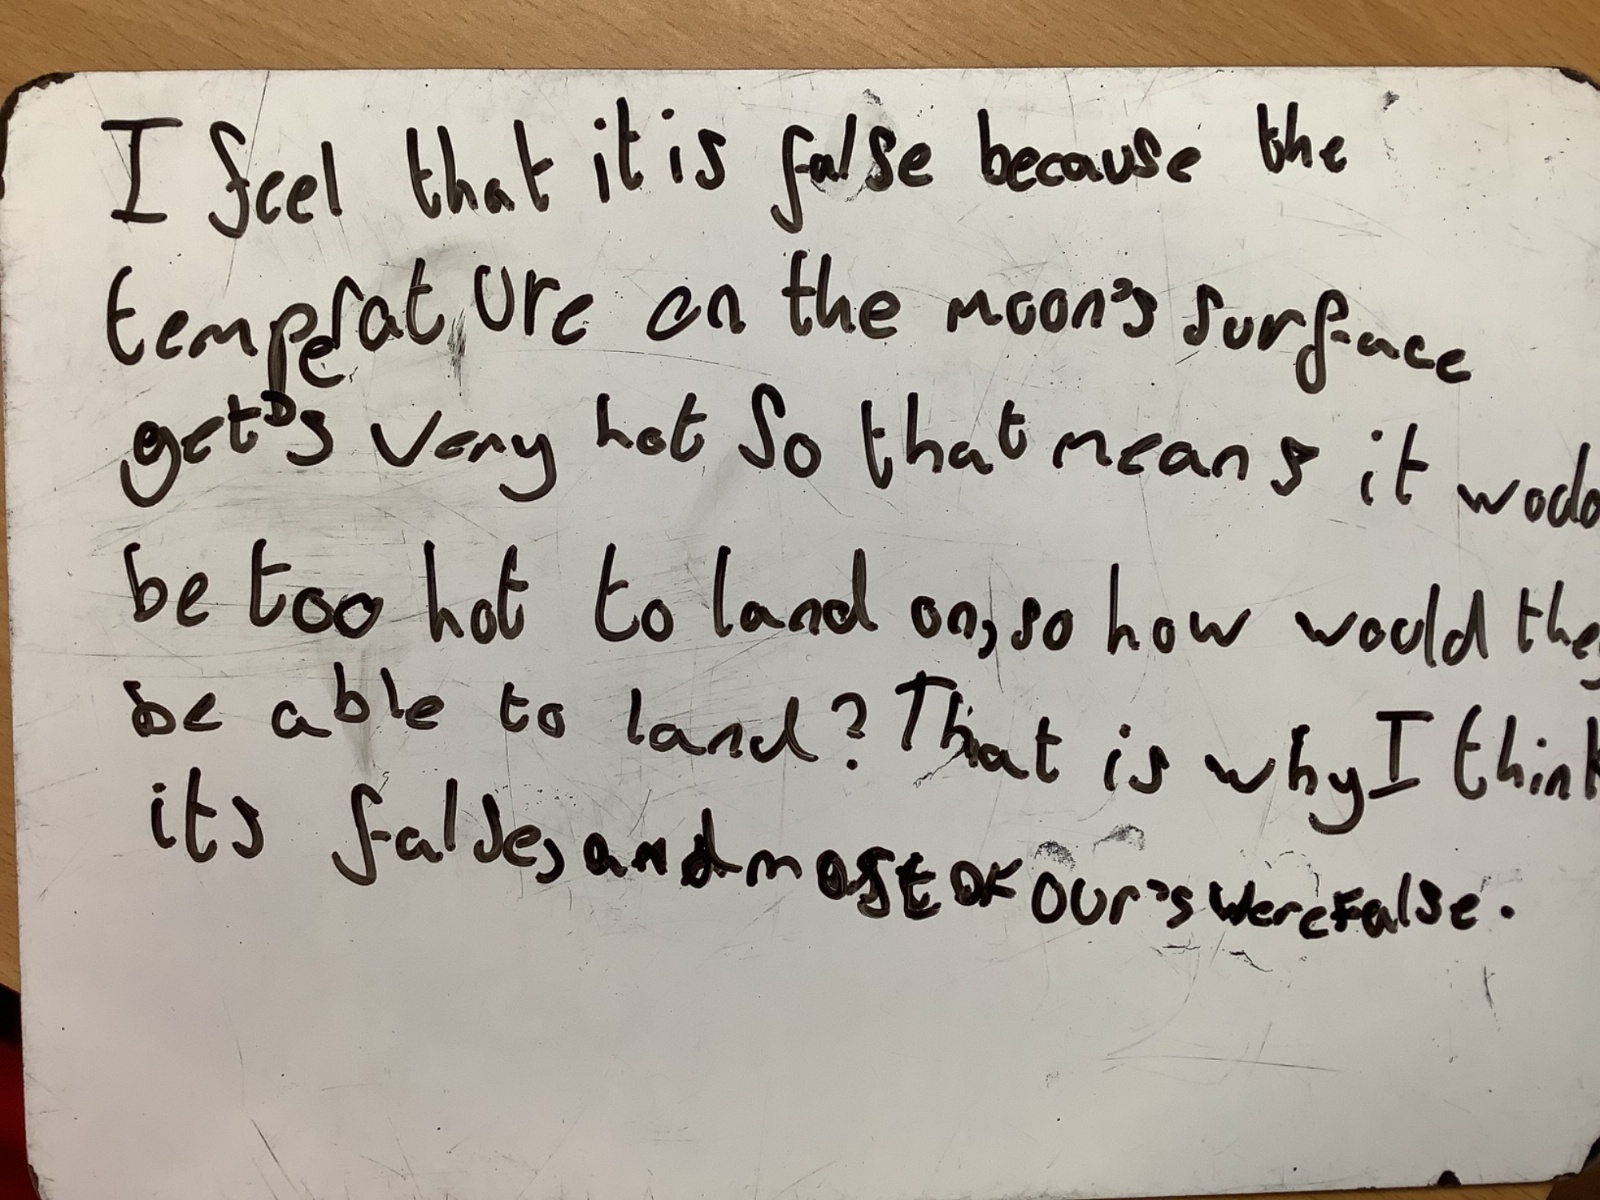 I feel that it is false because the
temperature on the moon's surface
get's very hot So that means it
be too hot to land on, so how would they
be able to land? That is why I think
its false, and most of our's were false.